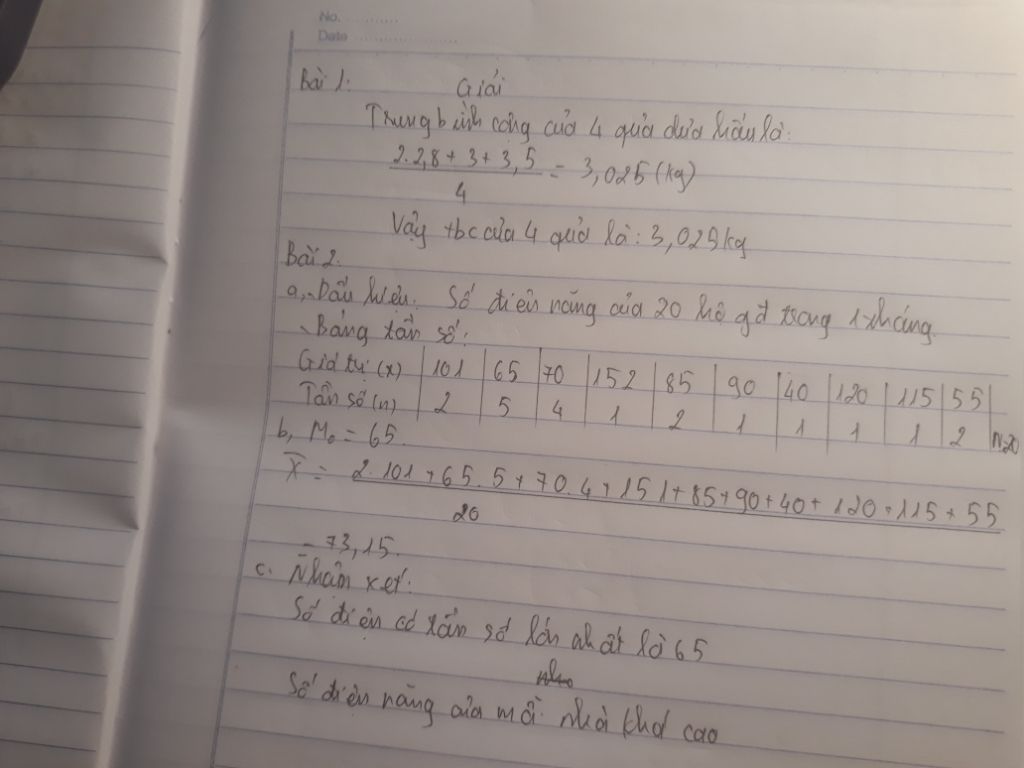 No. ............
Date ........................
Bài 1: Giải
Trung bình cộng của 4 quả dưa hấu là:
2.2,8 + 3 + 3,5 / 4 = 3,025 (kg)
Vậy tbc của 4 quả là: 3,025kg
Bài 2.
a, Dấu hiệu: Số điện năng của 20 hộ gđ trong 1 tháng
Bảng tần số:
Giá trị (x) | 101 | 65 | 70 | 152 | 85 | 90 | 40 | 120 | 115 | 55
Tần số (n) | 2 | 5 | 4 | 1 | 2 | 1 | 1 | 1 | 1 | 2 | N=20
b, M₀ = 65.
X̄ = 2.101 + 65.5 + 70.4 + 151 + 85 + 90 + 40 + 120 + 115 + 55
20
= 73,15.
c. Nhận xét:
Số điện có tần số lớn nhất là 65
Số điện năng của mỗi nhà khá cao